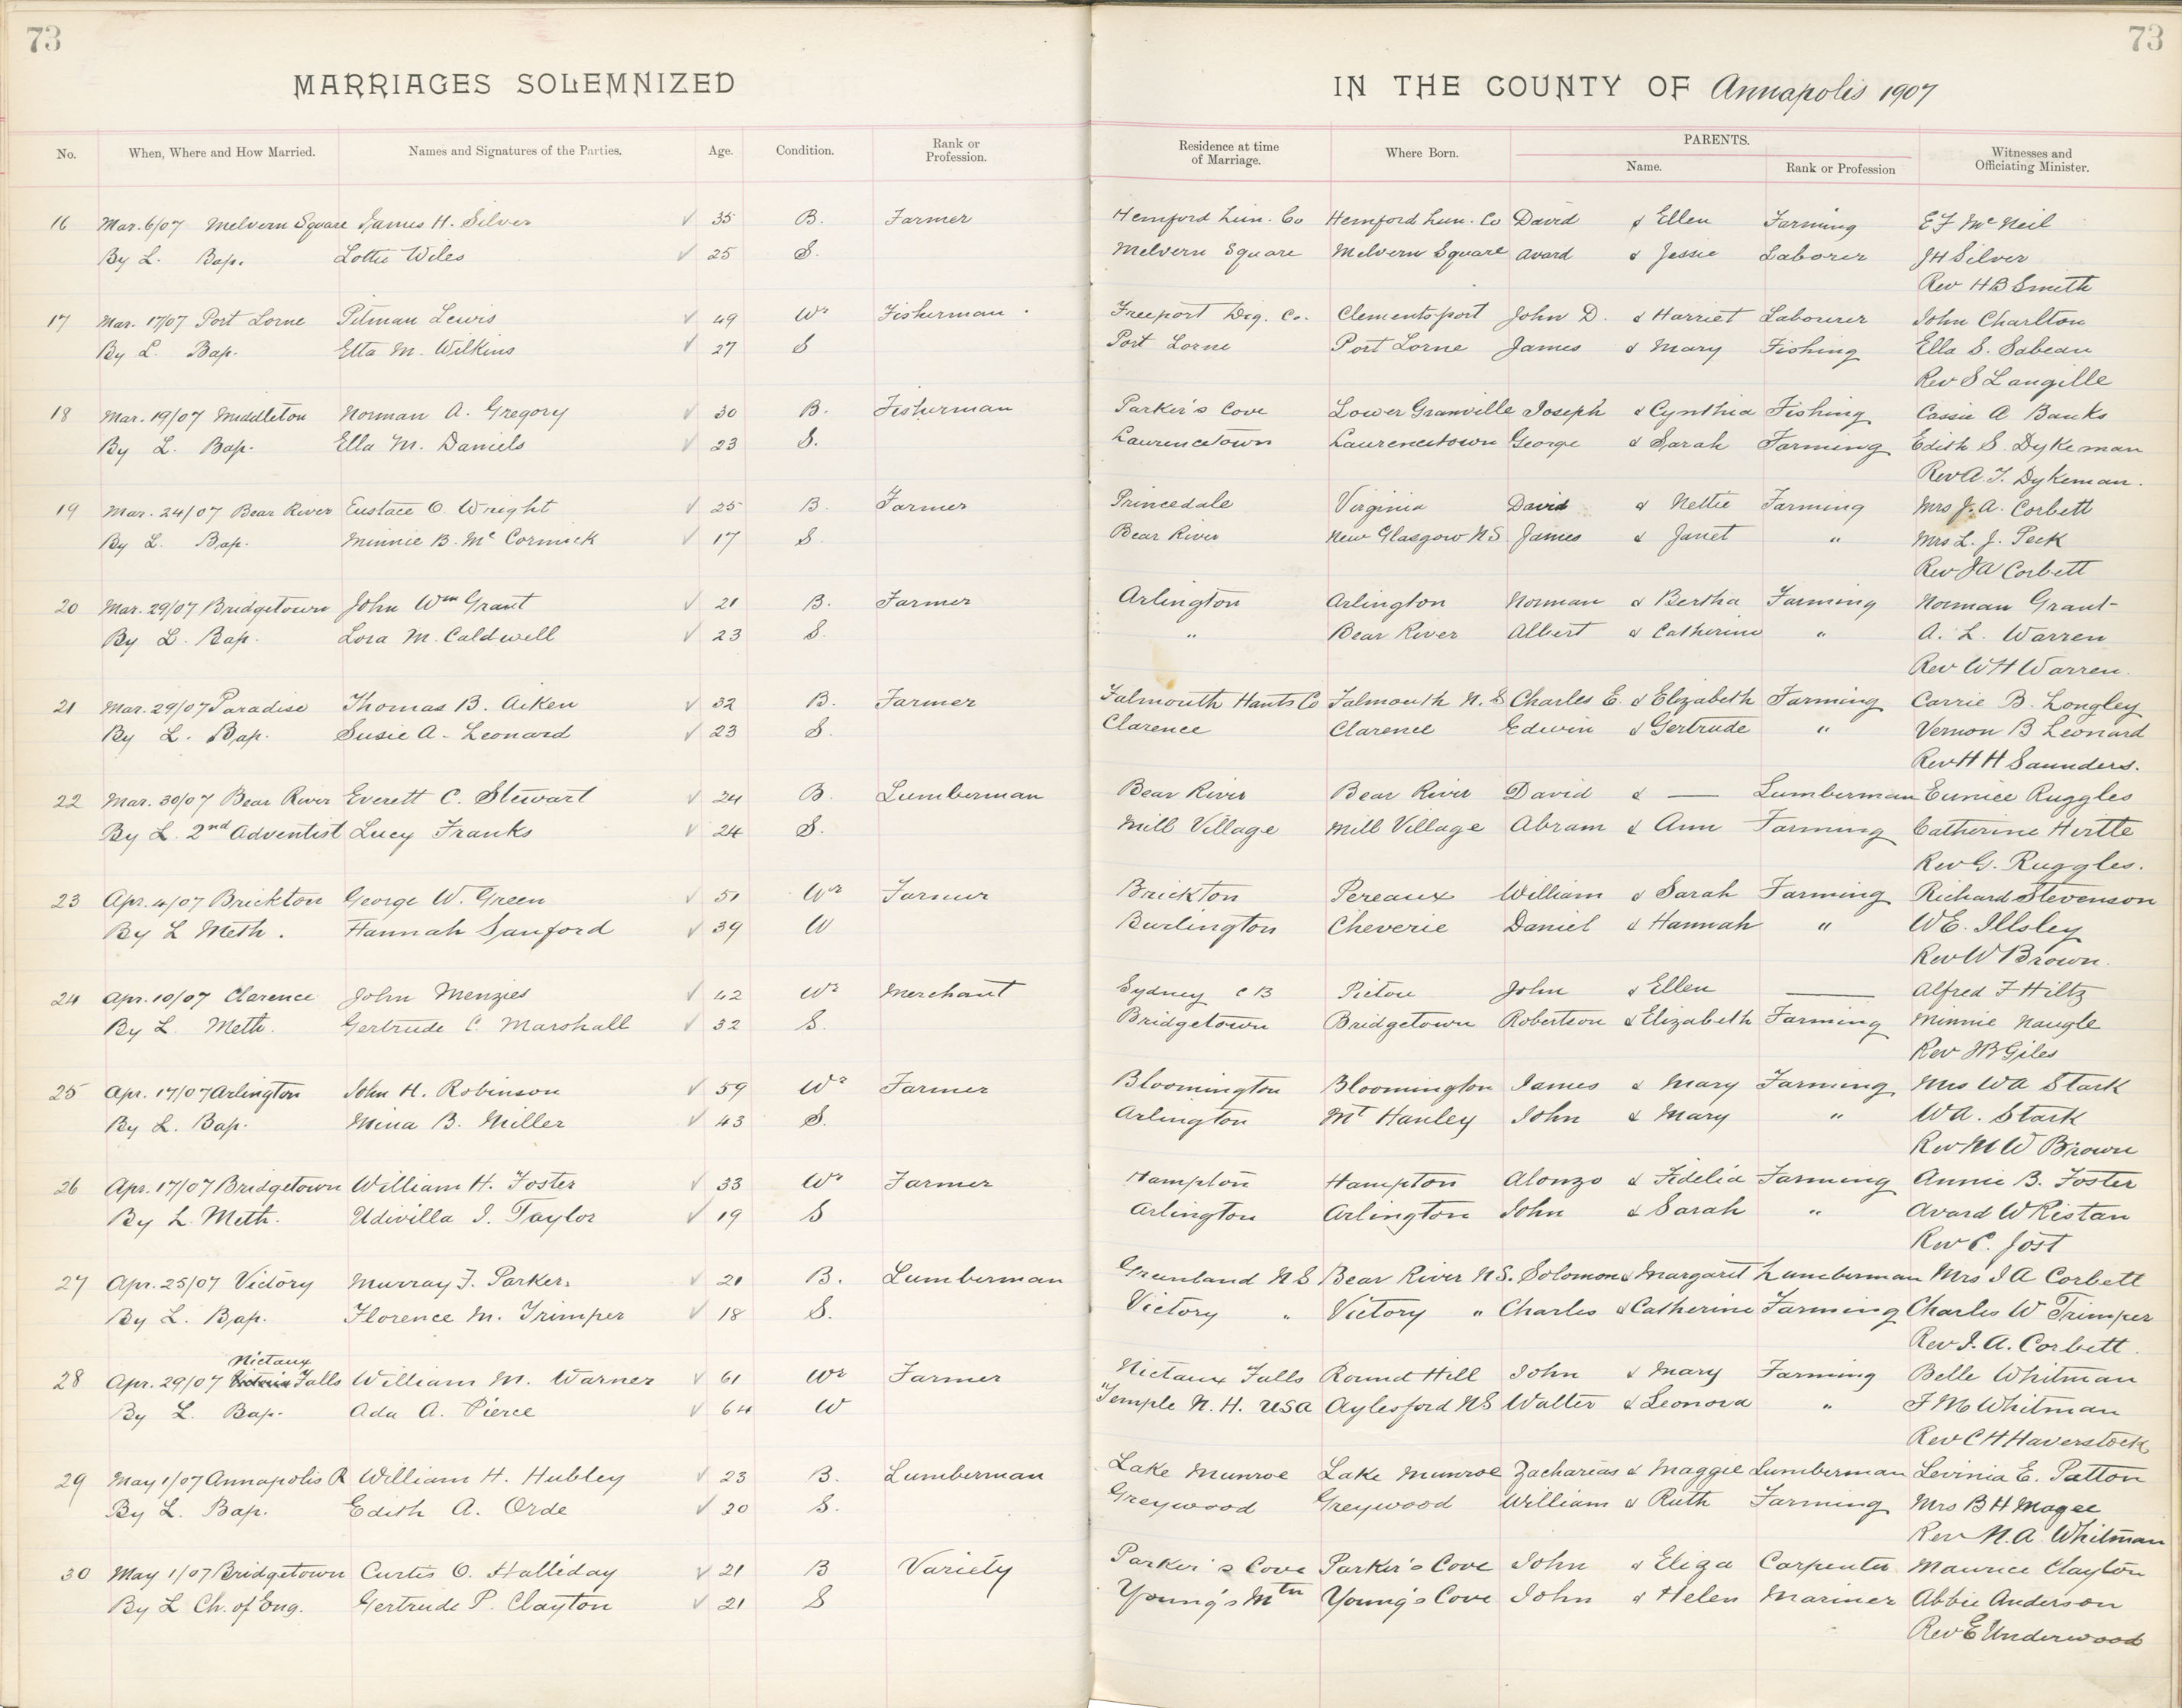 73 73
MARRIAGES SOLEMNIZED IN THE COUNTY OF Annapolis 1907
No. When, Where and How Married. Names and Signatures of the Parties. Age. Condition. Rank or Profession. Residence at time of Marriage. Where Born. PARENTS. Name. Rank or Profession Witnesses and Officiating Minister.
16 Mar. 6/07 Melvern Square James H. Silver √ 35 B. Farmer Hemford Lun. Co Hemford Lun. Co David & Ellen Farming E F McNeil
By L. Bap. Lottie Wiles √ 25 S. Melvern Square Melvern Square Avard & Jessie Laborer J H Silver
Rev H B Smith
17 Mar. 17/07 Port Lorne Pitman Lewis √ 49 Wr Fisherman. Freeport Dig. Co. Clementsport John D. & Harriet Labourer John Charlton
By L. Bap. Etta M. Wilkins √ 27 S Port Lorne Port Lorne James & Mary Fishing Ella S. Sabean
Rev S Langille
18 Mar. 19/07 Middleton Norman A. Gregory √ 30 B. Fisherman Parker's Cove Lower Granville Joseph & Cynthia Fishing Cassie A Banks
By L. Bap. Ella M. Daniels √ 23 S. Laurencetown Laurencetown George & Sarah Farming Edith S. Dykeman
Rev A. T. Dykeman.
19 Mar. 24/07 Bear River Eustace O. Wright √ 25 B. Farmer Princedale Virginia David & Nettie Farming Mrs J. A. Corbett
By L. Bap. Minnie B. McCormick √ 17 S. Bear River New Glasgow N S James & Janet " Mrs L. J. Peck
Rev J A Corbett
20 Mar. 29/07 Bridgetown John Wm Grant √ 21 B. Farmer Arlington Arlington Norman & Bertha Farming Norman Grant
By L. Bap. Lora M. Caldwell √ 23 S. " Bear River Albert & Catherine " A. L. Warren
Rev W H Warren.
21 Mar. 29/07 Paradise Thomas B. Aiken √ 32 B. Farmer Falmouth Hants Co Falmouth N. S Charles E. & Elizabeth Farming Carrie B. Longley
By L. Bap. Susie A. Leonard √ 23 S. Clarence Clarence Edwin & Gertrude " Vernon B Leonard
Rev H H Saunders.
22 Mar. 30/07 Bear River Everett C. Stewart √ 24 B. Lumberman Bear River Bear River David & — Lumberman Eunice Ruggles
By L. 2nd Adventist Lucy Franks √ 24 S. Mill Village Mill Village Abram & Ann Farming Catherine Hirtle
Rev G. Ruggles.
23 Apr. 4/07 Brickton George W. Green √ 51 Wr Farmer Brickton Pereaux William & Sarah Farming Richard Stevenson
By L Meth. Hannah Sanford √ 39 W Burlington Cheverie Daniel & Hannah " W E. Illsley
Rev W Brown.
24 Apr. 10/07 Clarence John Menzies √ 42 Wr Merchant Sydney C B Pictou John & Ellen — Alfred F Hiltz
By L. Meth. Gertrude C. Marshall √ 32 S. Bridgetown Bridgetown Robertson & Elizabeth Farming Minnie Naugle
Rev J B Giles
25 Apr. 17/07 Arlington John H. Robinson √ 59 Wr Farmer Bloomington Bloomington James & Mary Farming Mrs W A Stark
By L. Bap. Mina B. Miller √ 43 S. Arlington Mt Hanley John & Mary " W A. Stark
Rev M W Brown
26 Apr. 17/07 Bridgetown William H. Foster √ 33 Wr Farmer Hampton Hampton Alonzo & Fidelia Farming Annie B. Foster
By L. Meth. Udivilla I. Taylor √ 19 S Arlington Arlington John & Sarah " Avard W Ristan
Rev C. Jost
27 Apr. 25/07 Victory Murray F. Parker. √ 21 B. Lumberman Greenland N S Bear River N S. Solomon & Margaret Lumberman Mrs J A Corbett
By L. Bap. Florence M. Trimper √ 18 S. Victory " Victory " Charles & Catherine Farming Charles W Trimper
Rev J. A. Corbett.
Nictaux
28 Apr. 29/07 Falls William M. Warner √ 61 Wr Farmer Nictaux Falls Round Hill John & Mary Farming Belle Whitman
By L. Bap. Ada A. Pierce √ 64 W Temple N. H. USA Aylesford N S Walter & Leonora " F M Whitman
Rev C H Haverstock
29 May 1/07 Annapolis R William H. Hubley √ 23 B. Lumberman Lake Munroe Lake Munroe Zacharias & Maggie Lumberman Levinia E. Patton
By L. Bap. Edith A. Orde √ 20 S. Greywood Greywood William & Ruth Farming Mrs B H Magee
Rev N. A. Whitman
30 May 1/07 Bridgetown Curtis O. Halliday √ 21 B Variety Parker's Cove Parker's Cove John & Eliza Carpenter Maurice Clayton
By L Ch. of Eng. Gertrude P. Clayton √ 21 S Young's Mtn Young's Cove John & Helen Mariner Abbie Anderson
Rev E Underwood